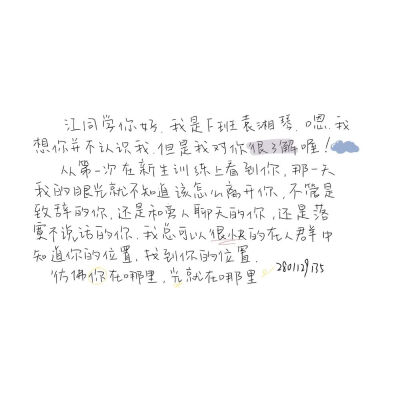 江同学你好,我是F班袁湘琴,嗯,我
想你并不认识我,但是我对你很了解喔!
从第一次在新生训练上看到你,那一天
我的眼光就不知道该怎么离开你,不管是
致辞的你,还是和旁人聊天的你,还是落
寞不说话的你,我总可以很快的在人群中
知道你的位置,找到你的位置.
仿佛你在哪里,光就在哪里 2801129135